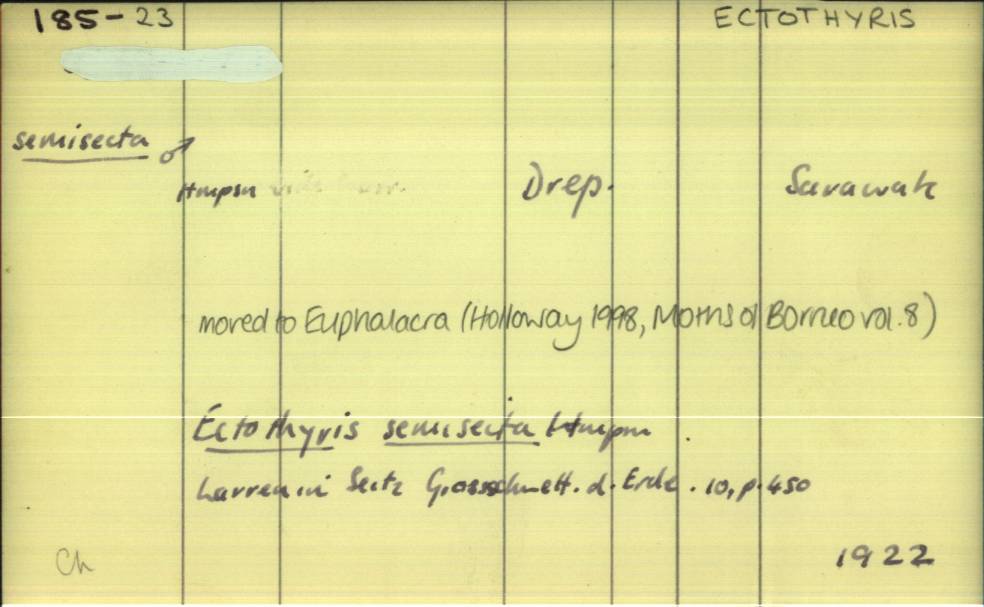 185-23 ECTOTHYRIS
semisecta ♂
Hmpsn Drep. Sarawak
moved to Euphalacra (Holloway 1998, Moths of Borneo vol. 8)
Ectothyris semisecta Hmpsn.
Warren in Seitz Grossschmett. d. Erde. 10, p. 450
Ch 1922